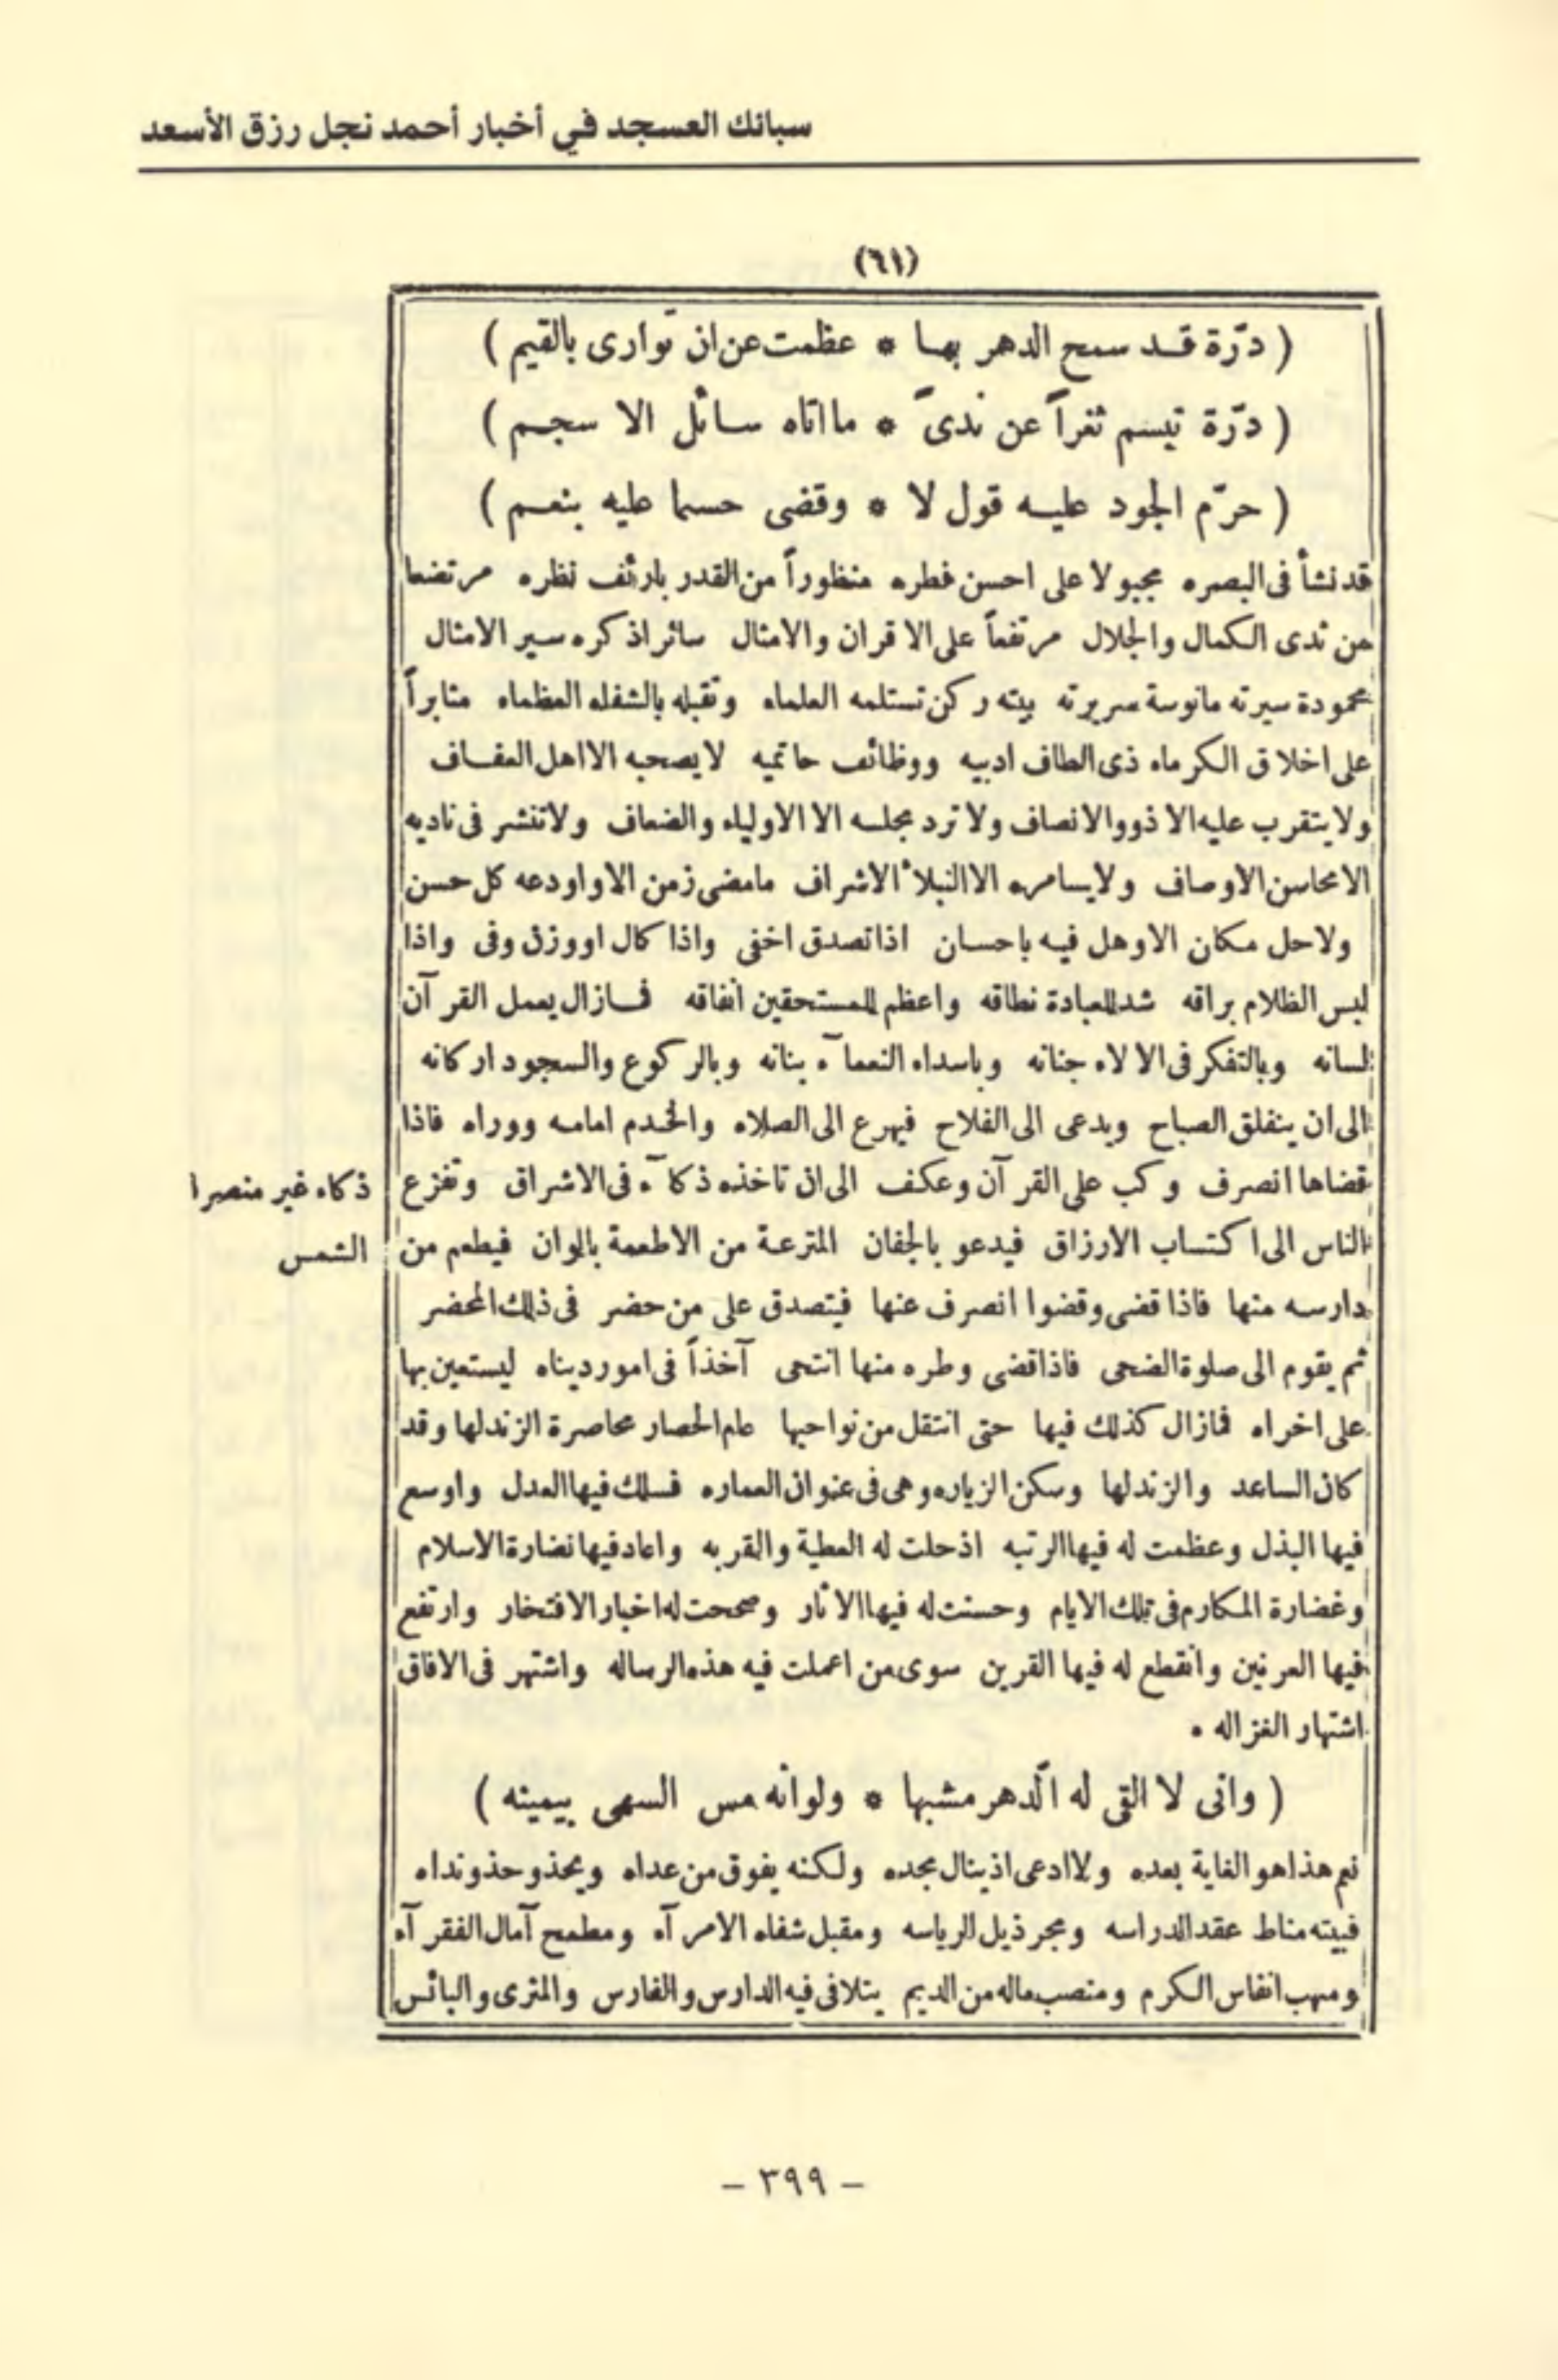 سبائك العسجد في أخبار أحمد نجل رزق الأسعد
(٦١)
( درّة قد سمح الدهر بها * عظمت عن ان توارى بالقيم )
( درّة تبسم ثغراً عن ندىً * ما اتاه سائل الا سجم )
( حرّم الجود عليه قول لا * وقضى حسما عليه بنعم )
قد نشأ فى البصره مجبولا على احسن فطره منظوراً من القدر بارئف نظره مرتضعا
من ثدى الكمال والجلال مرتفعاً على الاقران والامثال سائرا ذكره سير الامثال
محمودة سيرته مانوسة سريرته بيته ركن تستلمه العلماء وتقبله بالشفاه العظماء مثابراً
على اخلاق الكرماء ذى الطاف ادبيه ووظائف حاتميه لا يصحبه الا اهل العفاف
ولا يتقرب عليه الا ذوو الانصاف ولا ترد مجلسه الا الاولياء والضعاف ولا تنشر فى ناديه
الا محاسن الاوصاف ولا يسامره الا النبلاء الاشراف ما مضى زمن الا واودعه كل حسن
ولا حل مكان الا وهل فيه باحسان اذا تصدق اخفى واذا كال او وزن وفى واذا
لبس الظلام براقه شد للعبادة نطاقه واعظم للمستحقين انفاقه فما زال يعمل القرآن
لسانه وبالتفكر فى الالاء جنانه وباسداء النعمآء بنانه وبالركوع والسجود اركانه
الى ان ينفلق الصباح ويدعى الى الفلاح فيهرع الى الصلاه والخدم امامه ووراه فاذا
قضاها انصرف وكب على القرآن وعكف الى ان تاخذه ذكآء فى الاشراق وتفزع
ذكاء غير منصرا
الناس الى اكتساب الارزاق فيدعو بالجفان المترعة من الاطعمة بالوان فيطعم من
الشمس
دارسه منها فاذا قضى وقضوا انصرف عنها فيتصدق على من حضر فى ذلك المحضر
ثم يقوم الى صلوة الضحى فاذا قضى وطره منها انتحى آخذاً فى امور ديناه ليستعين بها
على اخراه فمازال كذلك فيها حتى انتقل من نواحيها عام الحصار محاصرة الزند لها وقد
كان الساعد والزند لها وسكن الزياره وهى فى عنوان العماره فسلك فيها العدل واوسع
فيها البذل وعظمت له فيها الرتبه اذ حلت له العطية والقربه واعاد فيها نضارة الاسلام
وغضارة المكارم فى تلك الايام وحسنت له فيها الاثار وصححت له اخبار الافتخار وارتفع
فيها العرنين وانقطع له فيها القرين سوى من اعملت فيه هذه الرساله واشتهر فى الافاق
اشتهار الغزاله .
( وانى لا القى له الّدهر مشبها * ولو انه مس السهى بيمينه )
نعم هذا هو الغاية بعده ولا ادعى اذ ينال مجده ولكنه يفوق من عداه ويحذو حذو نداه
فبيته مناط عقد الدراسه ومجر ذيل الرياسه ومقبل شفاه الامرآء ومطمح آمال الفقرآء
ومهب انفاس الكرم ومنصب ماله من الديم يتلافى فيه الدارس والفارس والمثرى والبائس
- ٣٩٩ -